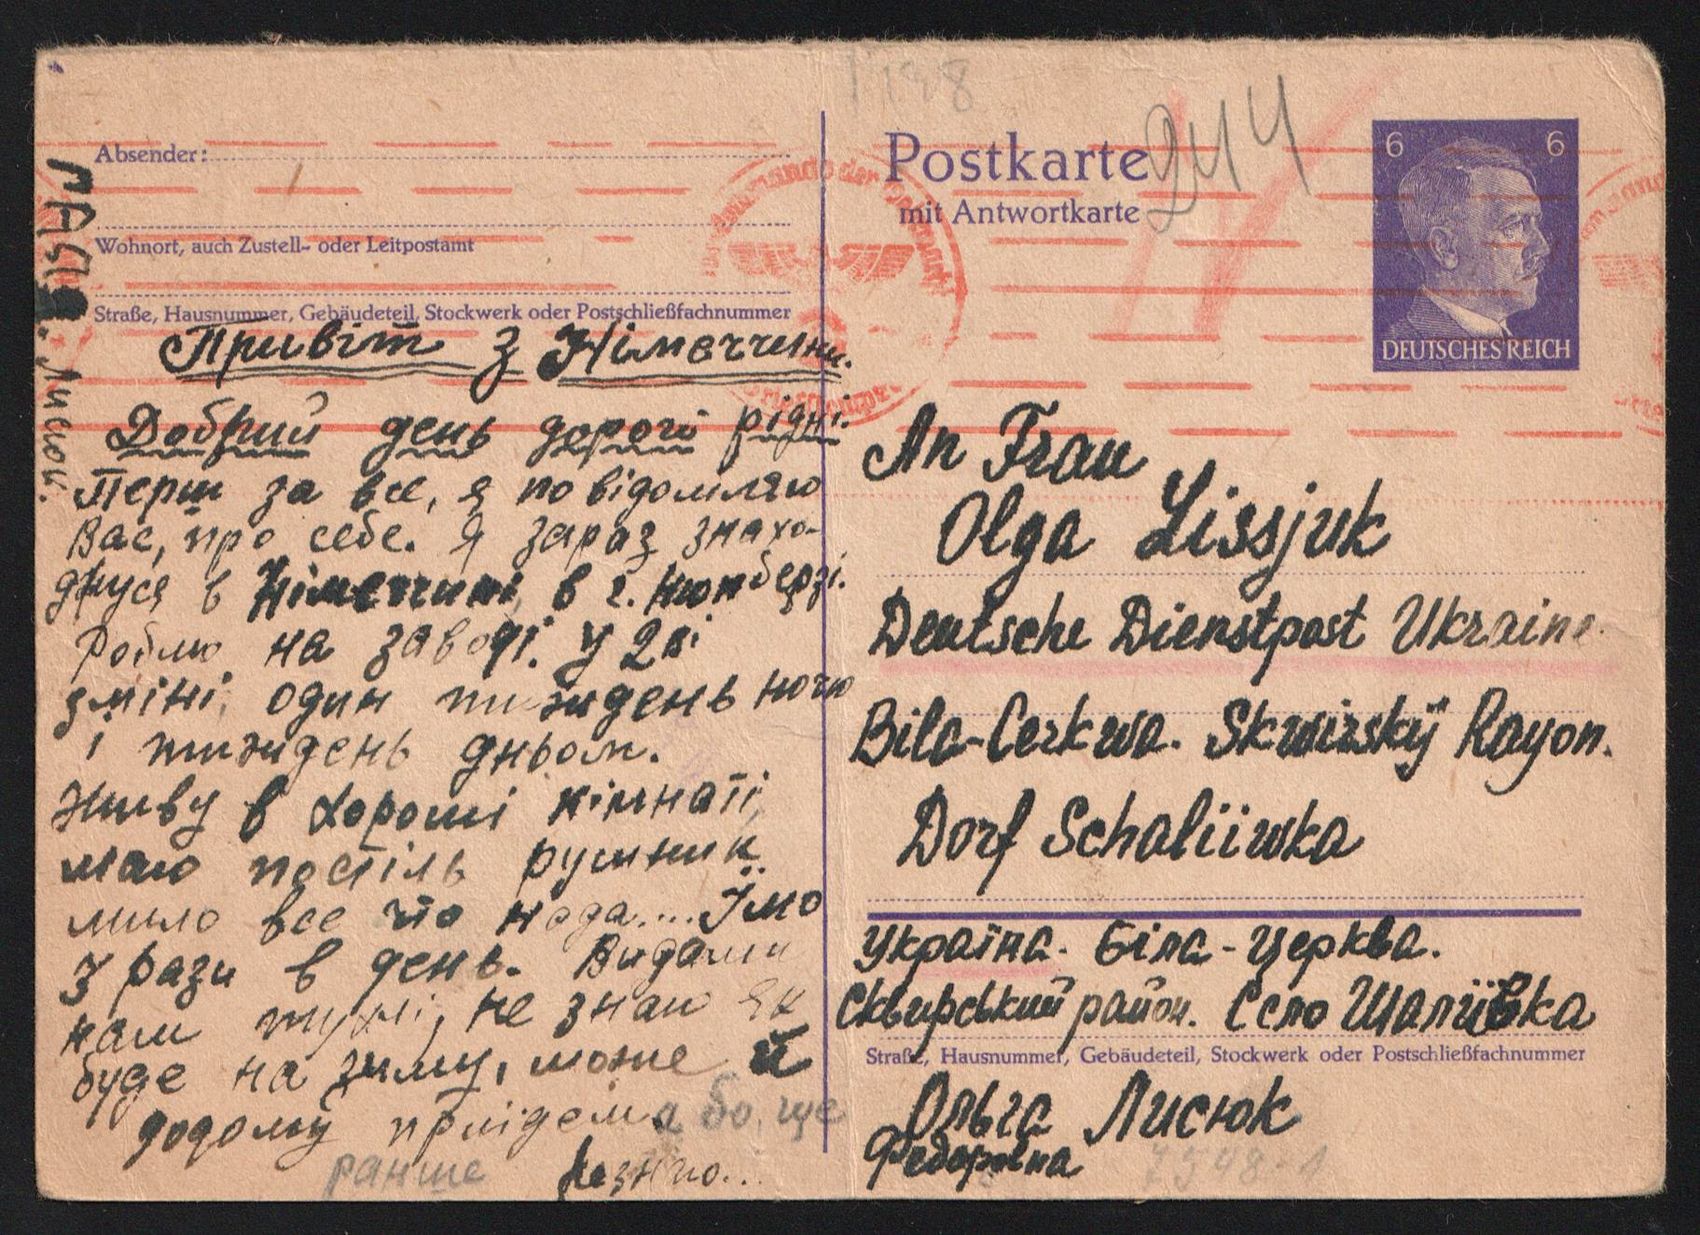 Absender:
Wohnort, auch Zustell- oder Leitpostamt
Straße, Hausnummer, Gebäudeteil, Stockwerk oder Postschließfachnummer
Привіт з Німеччини.
Добрий день дорогі рідні.
Перш за все, я повідомляю
Вас, про себе. Я зараз знахо-
джуся в Німеччині, в г. Нюнберзі.
Роблю на заводі. У 2ві
зміні, один тиждень ночю
і тиждень дньом.
Живу в хороші кімнаті,
маю постіль рушник
мило все что нада.... Їмо
3 рази в день. Видали
нам туфлі, не знаю як
буде на зиму, може й
додому приїдем, або, ще
ранше незнаю...
Postkarte
mit Antwortkarte
244
6 6
DEUTSCHES REICH
An Frau
Olga Lissjuk
Deutsche Dienstpost Ukraine.
Bila-Cerkwa. Skwirskÿ Rayon.
Dorf Schaliiwka
Україна. Біла-Церква.
Сквирський район. Село Шаліївка
Straße, Hausnummer, Gebäudeteil, Stockwerk oder Postschließfachnummer
Ольга Лисюк
Федоровна